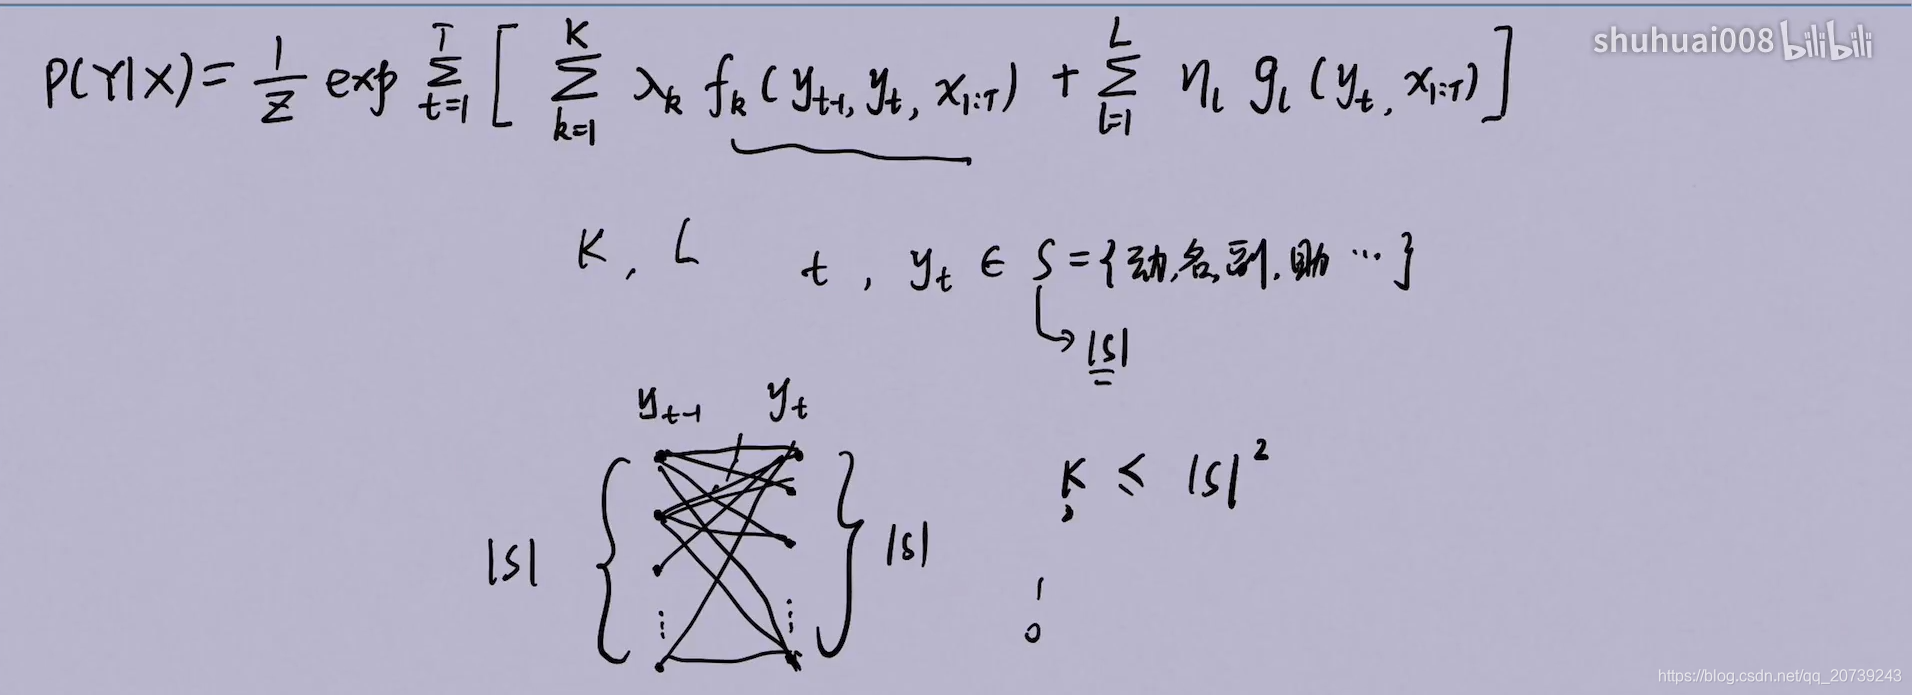 shuhuai008 bilibili
P(Y|X) = 1/Z exp Σ_{t=1}^{T} [ Σ_{k=1}^{K} λ_k f_k (y_{t-1}, y_t, x_{1:T}) + Σ_{l=1}^{L} η_l g_l (y_t, x_{1:T}) ]
K, L t, y_t ∈ S = {动, 名, 副, 助 ⋯}
|S|
y_{t-1} y_t
K ≤ |S|²
|S| |S|
1
0
https://blog.csdn.net/qq_20739243